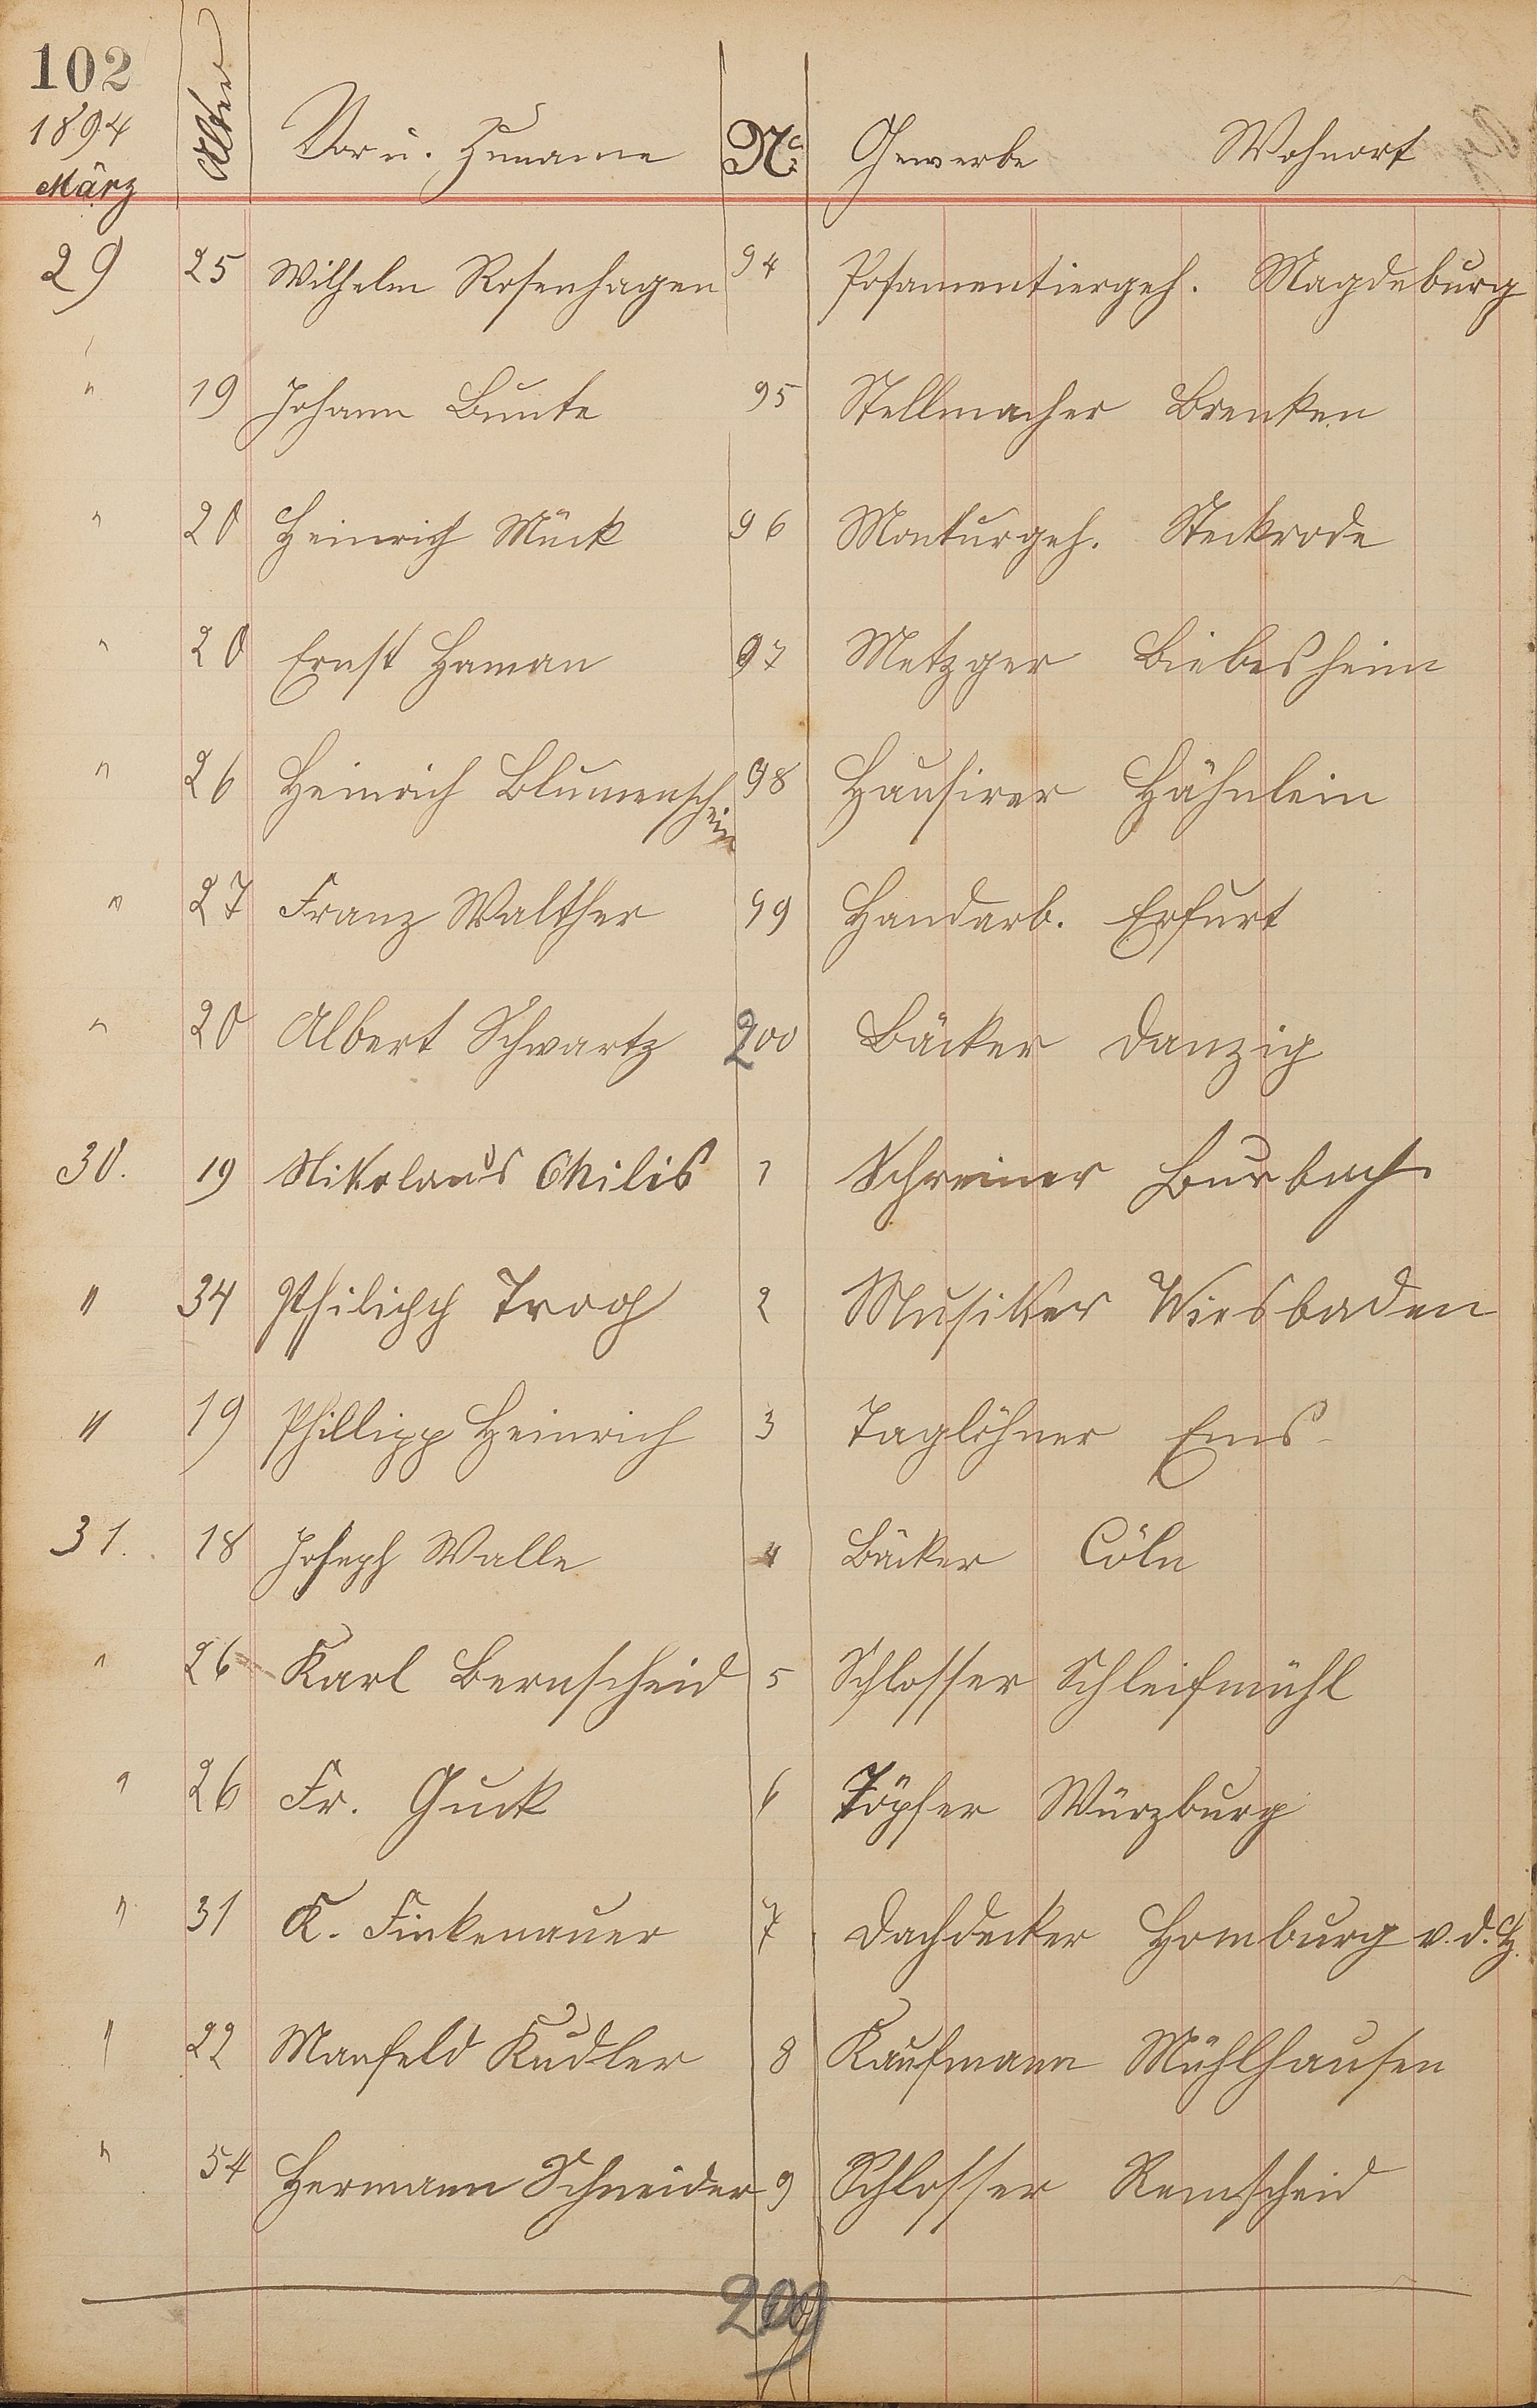 102
1894 Alter Vor u. Zuname No. Gewerbe Wohnort
März
29 25 Wilhelm Rosenhagen 94 Posamentiergeh. Magdeburg
" 19 Johann Bunte 95 Stellmacher Brenken
" 20 Heinrich Mück 96 Steckrode
" 20 Ernst Haman 97 Metzger Biebesheim
" 26 Heinrich Blumenschein 98 Hausirer Hähnlein
" 27 Franz Walther 99 Handarb. Erfurt
" 20 Albert Schwartz 200 Bäcker Danzig
30. 19 Nikolaus 1 Schreiner Burbach
" 34 Philipp Trog 2 Musiker Wiesbaden
" 19 Phillipp Heinrich 3 Taglöhner Ems
31. 18 Joseph Walle 4 Bäcker Cöln
" 26 Karl Bernscheid 5 Schlosser Schleifmühl
" 26 Fr. Guck 6 Töpfer Würzburg
" 31 K. Finkenauer 7 Dachdecker Homburg v. d. H.
" 22 Manfeld Kudler 8 Kaufmann Mühlhausen
" 54 Hermann Schneider 9 Schlosser Remscheid
209